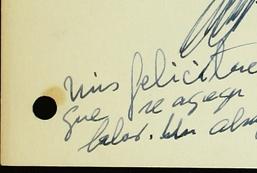 mis felicita
que se agreg
labor. Un abra